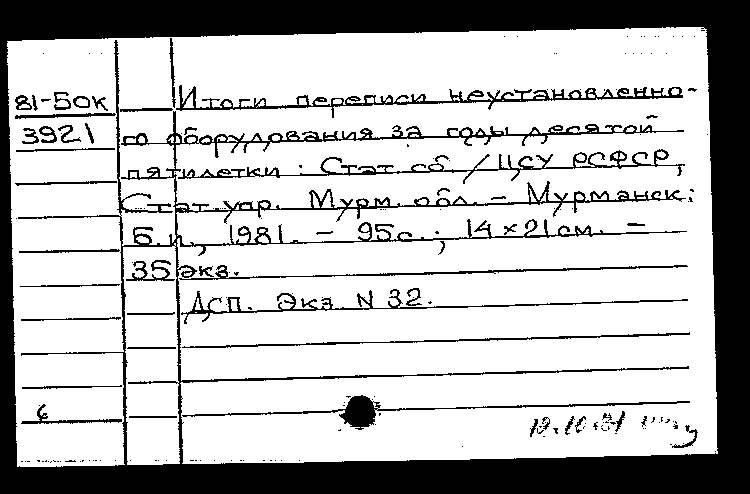 81-50к Итоги переписи неустановленно-
3921 го оборудования за годы десятой
пятилетки : Стат. сб. / ЦСУ РСФСР,
Стат. упр. Мурм. обл. – Мурманск:
Б.и., 1981. – 95с.; 14×21см. –
35 экз.
ДСП. Экз. N 32.
6